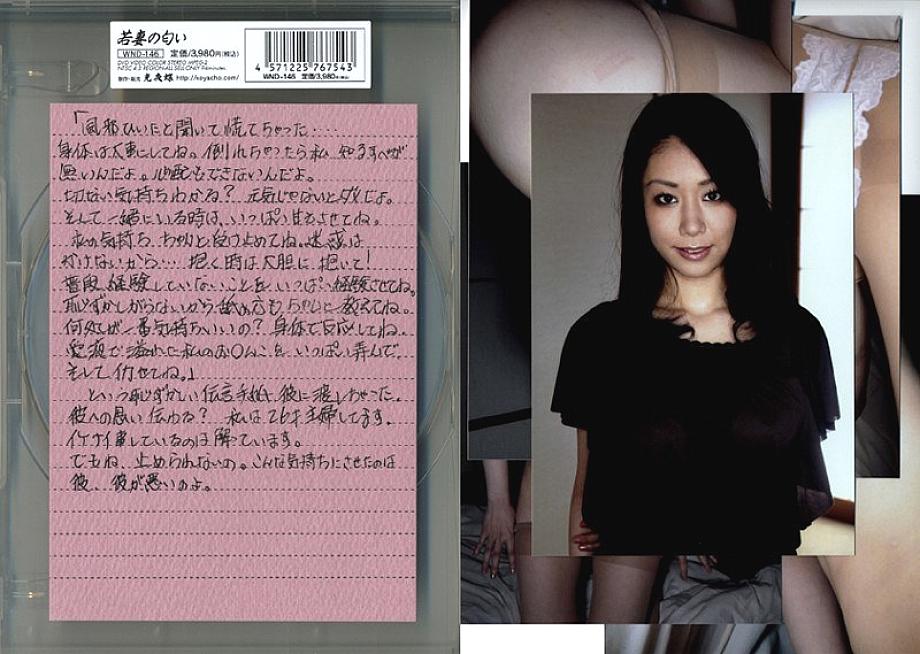 若妻の匂い
WND-146 定価/3,980円(税込)
DVD VIDEO COLOR STEREO MPEG-2
http://koyacho.com/
4 571225 767543
WND-146 定価/3,980円(税込)
「風邪ひいたと聞いて慌てちゃった…
身体は大事にしてね。倒れちゃったら私
無いんだよ。心配もできないんだよ。
切ない気持ちわかる? 元気じゃないとダメだよ。
そして一緒にいる時は、いっぱい甘えさせてね。
私の気持ち、ちゃんと受け止めてね。迷惑は
かけないから… 抱く時は大胆に抱いて!
普段、経験していないことを、いっぱい経験させてね。
恥ずかしがらないから舐め方もちゃんと教えてね。
何処が一番気持ちいいの? 身体で反応してね。
愛液で溢れた私のお〇んこをいっぱい弄んで。
そして イカせてね。」
という恥ずかしい伝言手紙、彼に渡しちゃった。
彼への思い伝わる? 私は26才 主婦してます。
イケナイ事しているのは解っています。
でもね、止められないの。こんな気持ちにさせたのは
彼、彼が悪いのよ。